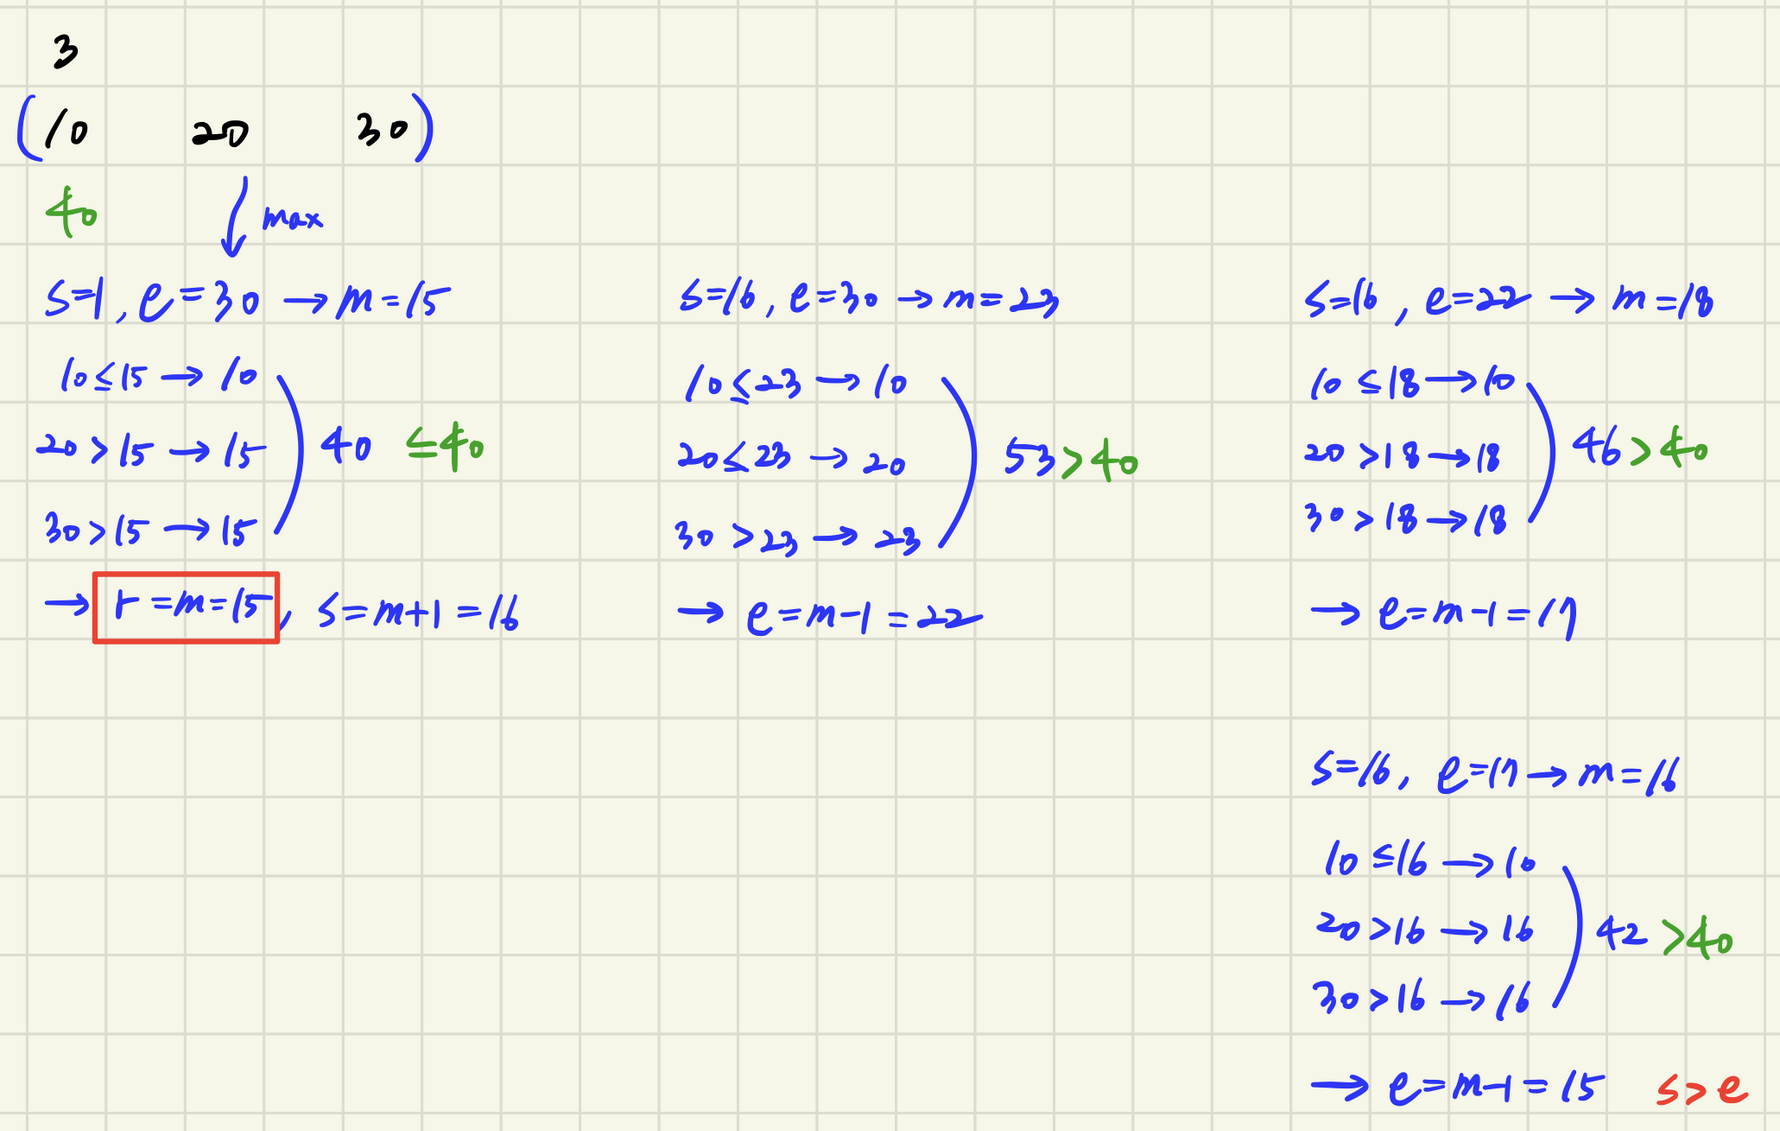 3
(10 20 30)
40
max
s=1, e=30 → m=15
10≤15 → 10
20>15 → 15
30>15 → 15
40 ≤40
→ r=m=15, s=m+1=16
s=16, e=30 → m=23
10≤23 → 10
20≤23 → 20
30>23 → 23
53>40
→ e=m-1=22
s=16, e=22 → m=18
10≤18 → 10
20>18 → 18
30>18 → 18
46>40
→ e=m-1=17
s=16, e=17 → m=16
10≤16 → 10
20>16 → 16
30>16 → 16
42 >40
→ e=m-1=15 s>e